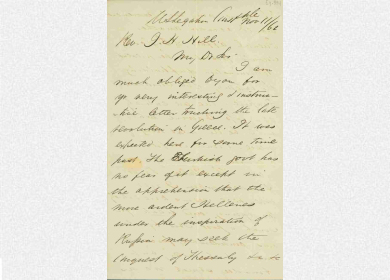 Nov 11/62
Rev. J. H. Hill.
My Dr Sir
I am
much obliged to you for
yr very interesting & instruc-
tive letter touching the late
revolution in Greece. It was
expected here for some time
past. The Turkish govt has
no fear of it except in
the apprehension that the
more ardent Hellenes
under the inspiration of
Russia may seek the
Conquest of Thessaly